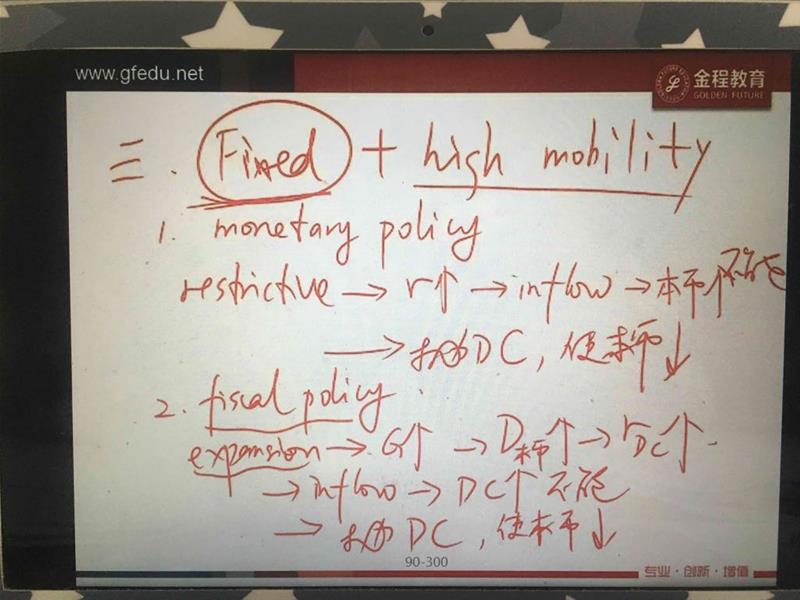 www.gfedu.net
金程教育
GOLDEN FUTURE
三. Fixed + high mobility
1. monetary policy
restrictive → r↑ → inflow → 本币↑不能
→ 抛DC, 使本币↓
2. fiscal policy.
expansion → G↑ → D本币↑ → rDC↑.
→ inflow → DC↑不能
→ 抛DC, 使本币↓
90-300
专业·创新·增值